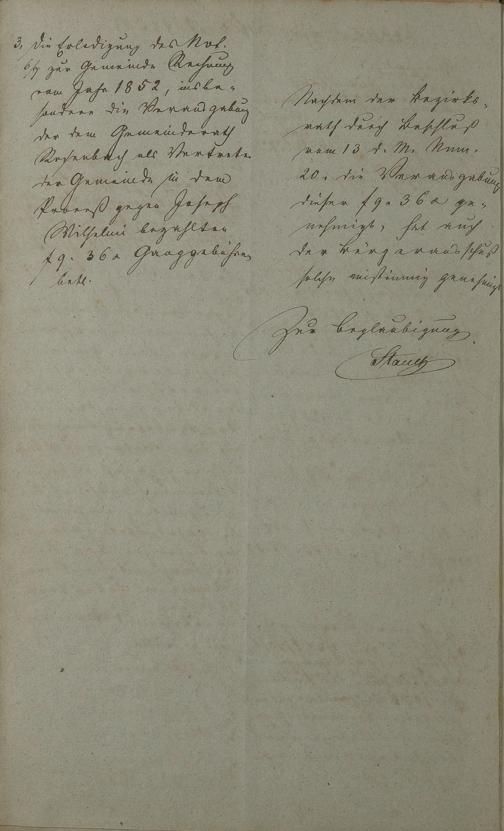 3, die Erledigung des Not.
6/7 zur Gemeinde Rechnung
vom Jahr 1852, insbe-
sondere die Verausgabung
der dem Gemeinderath
Rosenbach als Vertreter
der Gemeinde in dem
Prozeß gegen Joseph
Wilhelmi bezahlten
fg. 36 x Ganggebühren
betr.
Nachdem der Bezirks-
rath durch Beschluß
vom 13 d. M. Num.
20. die Verausgabung
dieser fg. 36 x ge-
nehmigt, hat auch
der Bürgerausschuß
solche einstimmig genehmigt
Zur Beglaubigung
Stauch